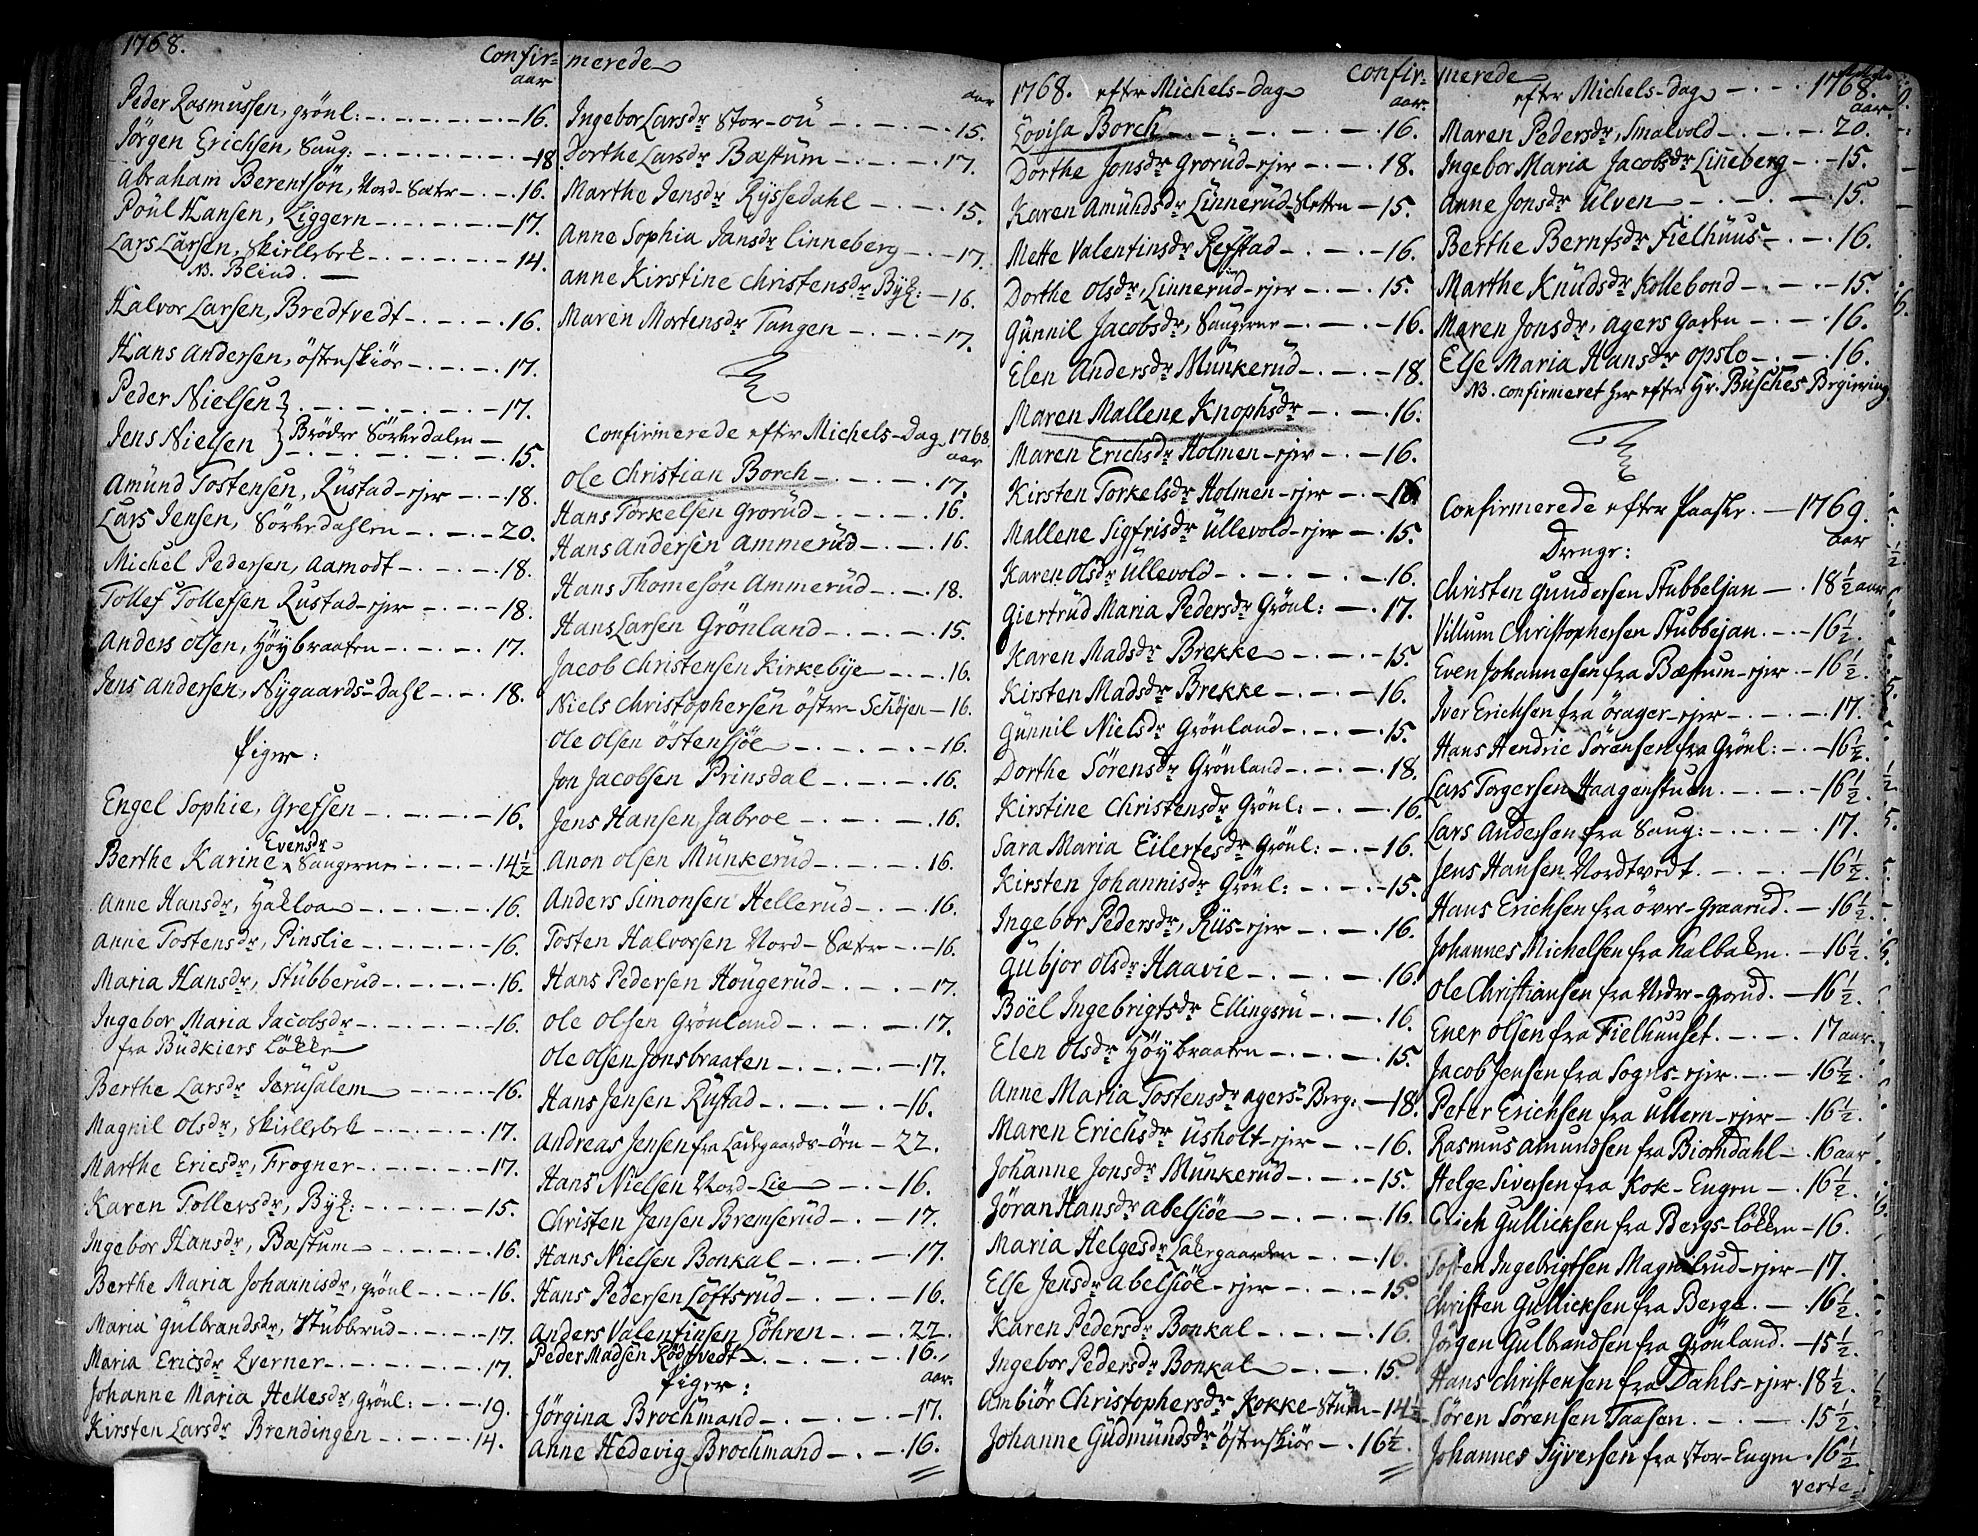 1768.
Confir-
aar
Peder Rasmussen, grönl: 16.
Jörgen Erichsen, Saug: 18
Abraham Berentsön, Nord-Sæter 16.
Poül Hansen, Liggern 17.
Lars Larsen, Skillebek 14.
NB. Blind.
Halvor Larsen, Bredtvedt 16.
Hans Andersen, östenskiör 17.
Peder Nielsen 17.
Jens Nielsen } Brödre Sörkedalen 15.
Amünd Tostensen, Rüstad-ejer 18.
Lars Jensen, Sörkedahlen 20.
Michel Pedersen, Aamodt 18.
Tollef Tollefsen Rustad-ejer 18.
Anders Olsen, Höybraaten 17.
Jens Andersen, Nygaards-Dahl 18.
Piger:
Engel Sophie, Grefsen 16.
Evensdr
Berthe Karine, Saugerne 14½
Anne Hansdr, Hakloa 16.
Anne Tostensdr, Pinslie 16.
Maria Hansdr, Stübberud 16.
Ingebor Maria Jacobsdr 16.
fra Büdkiers Lökke
Berthe Larsdr Jerüsalem 16.
Magnil Olsdr, Skillebek 17.
Marthe Ericsdr, Frogner 17.
Karen Tollersdr, Byk: 15.
Ingebor Hansdr, Bæstum 16.
Berthe Maria Johannisdr, grönl 16.
Maria Gülbrandsdr, Stübberud 17.
Maria Ericsdr Kverner 17.
Johanne Maria Hellesdr, Grönl: 19.
Kirsten Larsdr Brendingen 14.
merede
aar
Ingebor Larsdr Stor-öü 15.
Dorthe Larsdr Bæstüm 17.
Marthe Jensdr Ryssedahl 15.
Anne Sophia Jansdr Linneberg 17.
Anne Kirstine Christensdr Byk: 16.
Maren Mortensdr Tangen 17.
Confirmerede efter Michels-Dag 1768.
aar
Ole Christian Borch 17.
Hans Torkelsen Grorüd 16.
Hans Andersen Ammerüd 16.
Hans Thomesön Ammerüd 18.
Hans Larsen Grönland 15.
Jacob Christensen Kirkebye 16.
Niels Christophersen öster Schöjen 16.
Ole Olsen östensiöe 16.
Jon Jacobsen Prinsdal 16.
Jens Hansen Jabroe 16.
Anon Olsen Münkerüd 16.
Anders Simonsen Hellerüd 16.
Tosten Halvorsen Nord-Sæter 16.
Hans Pedersen Hougerüd 17.
Ole Olsen Grönland 17.
Ole Olsen Jonsbraaten 17.
Hans Jensen Rüstad 16.
Andreas Jensen fra Ladegaards-örn 22.
Hans Nielsen Nord-Lie 16.
Christen Jensen Bremserüd 17.
Hans Nielsen Bonkal 17.
Hans Pedersen Löftsrüd 16.
Anders Valentinsen Löhren 22.
Peder Madsen Rödtvedt 16.
Piger: aar.
Jörgina Brochmand 17.
Anne Hedevig Brochmand 16.
1768. efter Michels-Dag
Confir-
aar.
Lovisa Borch 16.
Dorthe Jonsdr Grorüd-ejer 18.
Karen Amündsdr Linnerüd-Sletten 15.
Mette Valentinsdr Refstad 16.
Dorthe Olsdr, Linnerüd-ejer 15.
Günnil Jacobsdr, Saugerne 16.
Elen Andersdr Münkerüd 18.
Maren Mallene Knophsdr 16.
Maren Erichsdr Holmen-ejer 16.
Kirsten Torkelsdr Holmen-ejer 16.
Mallene Sigfrisdr Üllevold-ejer 15.
Karen Olsdr Üllevold 16.
Giertrüd Maria Pedersdr Grönl: 17.
Karen Madsdr Brekke 15.
Kirsten Madsdr Brekke 16.
Günnil Nielsdr Grönland 15.
Dorthe Sörensdr Grönland 18.
Kirstine Christensdr Grönl: 16.
Sara Maria Eilertesdr Grönl: 16.
Kirsten Johannisdr Grönl: 15.
Ingebor Pedersdr, Riis-ejer 16.
Gübjor Olsdr Haavie 16.
Böel Ingebrigtsdr Ellingsrü 16.
Elen Olsdr Höybraaten 15.
Anne Maria Tostensdr agers-Berg: 18.
Maren Erichsdr Üsholt-ejer 16.
Johanne Jonsdr Münkerüd 15.
Jöran Hansdr Abelsiöe 16.
Maria Helgesdr Ladegaarden 16.
Else Jensdr Abelsiöe-ejer 15.
Karen Pedersdr Bonkal 16.
Ingebor Pedersdr Bonkal 15.
Ambiör Christophersdr Kokke-Stüen 14½
Johanne Güdmündsdr östenskiör 16½.
merede
efter Michels-Dag 1768.
aar.
Maren Pedersdr, Smalvold 20.
Ingebor Maria Jacobsdr Linneberg 15.
Anne Jonsdr Ülven 15.
Berthe Berntsdr Fielhüüs 16.
Marthe Knüdsdr Kollebond 15.
Maren Jonsdr, agers Gaden 16.
Else Maria Hansdr Opslo 16.
NB. confirmeret her efter Hr. Büsches Begiering
Confirmerede efter Paaske. 1769.
Drenge: aar
Christen Gundersen Stubbeljan 18½ aar
Villum Christophersen Stubbejan. 16½.
Even Johannesen fra Bæstum-ejer 16½.
Iver Erichsen fra örager-ejer 17.
Hans Hendric Sörensen fra Grönl: 16½.
Lars Torgersen Haagenstuen. 16½.
Lars Andersen fra Saug: 17.
Jens Hansen Nordtvedt. 16½.
Hans Erichsen fra övre-Graarud. 16½.
Johannes Michelsen fra Kalbakken. 16½.
Ole Christiansen fra Nedre-Grorud. 16½.
Ener Olsen fra Fielhuuset. 17 aar.
Jacob Jensen fra Sogns-ejer. 16½.
Peter Erichsen fra Ullern-ejer 16½.
Rasmus Amundsen fra Biorndahl 16 aar
Helge Siversen fra Kok-Engen 16½.
Erich Gullicksen fra Bergs-lökken 16.
Tosten Ingebrigtsen Magnelrud-ejer 17.
Christen Gullicksen fra Berge. 16½.
Jörgen Gulbrandsen fra Grönland. 15½.
Hans Christensen fra Dahls-ejer 18½.
Sören Sörensen Taasen. 15½.
Johannes Syversen fra Stor-Engen 16½.
verte